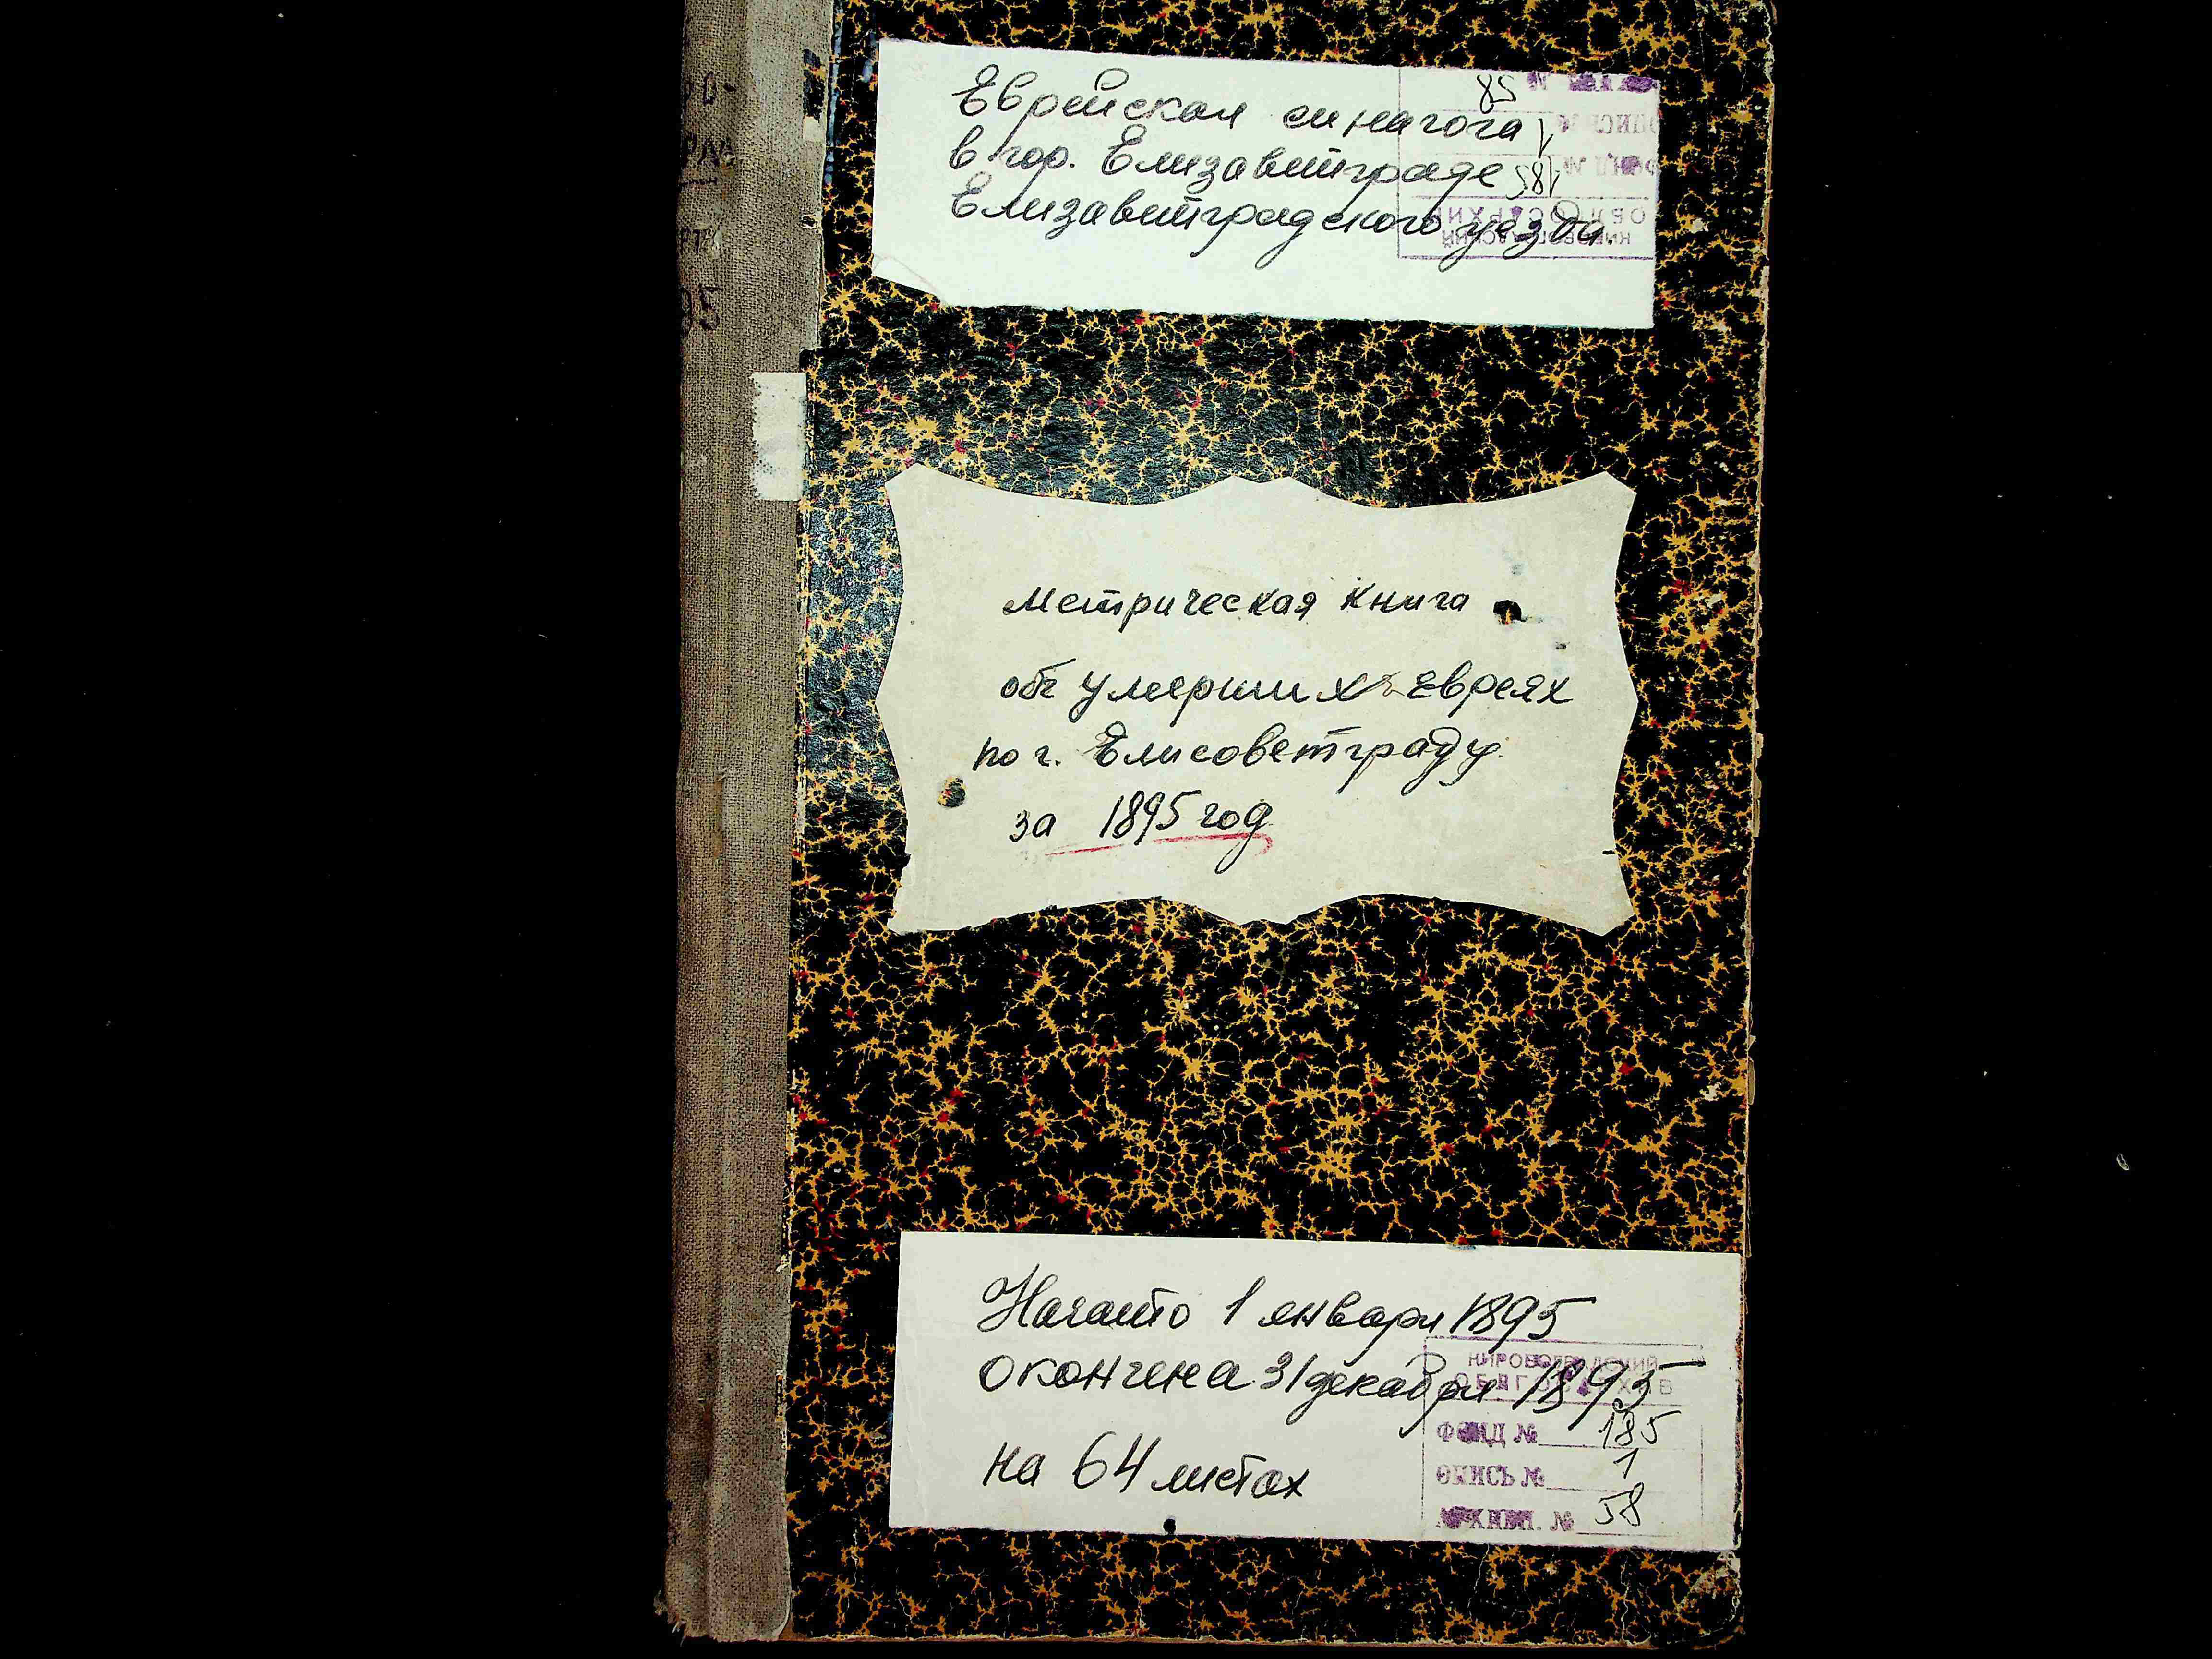 Еврейская синагога
в гор. Елизаветграде
Елизаветградского уезда.
58
1
185
Метрическая книга
объ умерших евреях
по г. Елисоветграду.
за 1895 год
Начато 1 января 1895
окончена 31 декабря 1895
на 64 листах
КИРОВОГРАДСКИЙ
ОБЛГОСАРХИВ
ФОНД № 185
ОПИСЬ № 1
АРХИВН. № 58